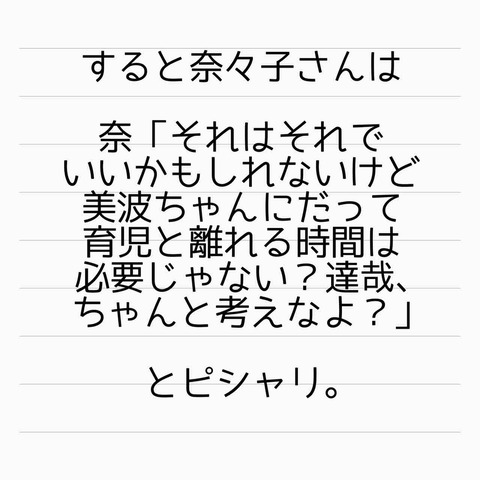 すると奈々子さんは
奈「それはそれで
いいかもしれないけど
美波ちゃんにだって
育児と離れる時間は
必要じゃない？達哉、
ちゃんと考えなよ？」
とピシャリ。